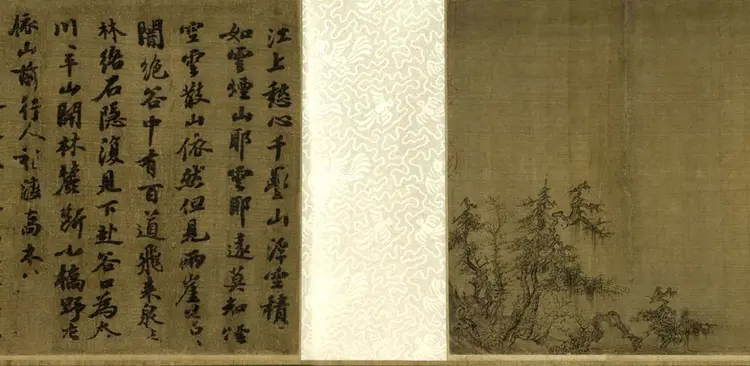 江上愁心千疊山浮空積
如雲煙山耶雲耶遠莫知煙
空雲散山依然但見兩崖蒼〻
闇絕谷中有百道飛来泉
林絡石隱復見下赴谷口為奔
川〻平山開林麓斷小橋野店
依山前行人稍度喬木